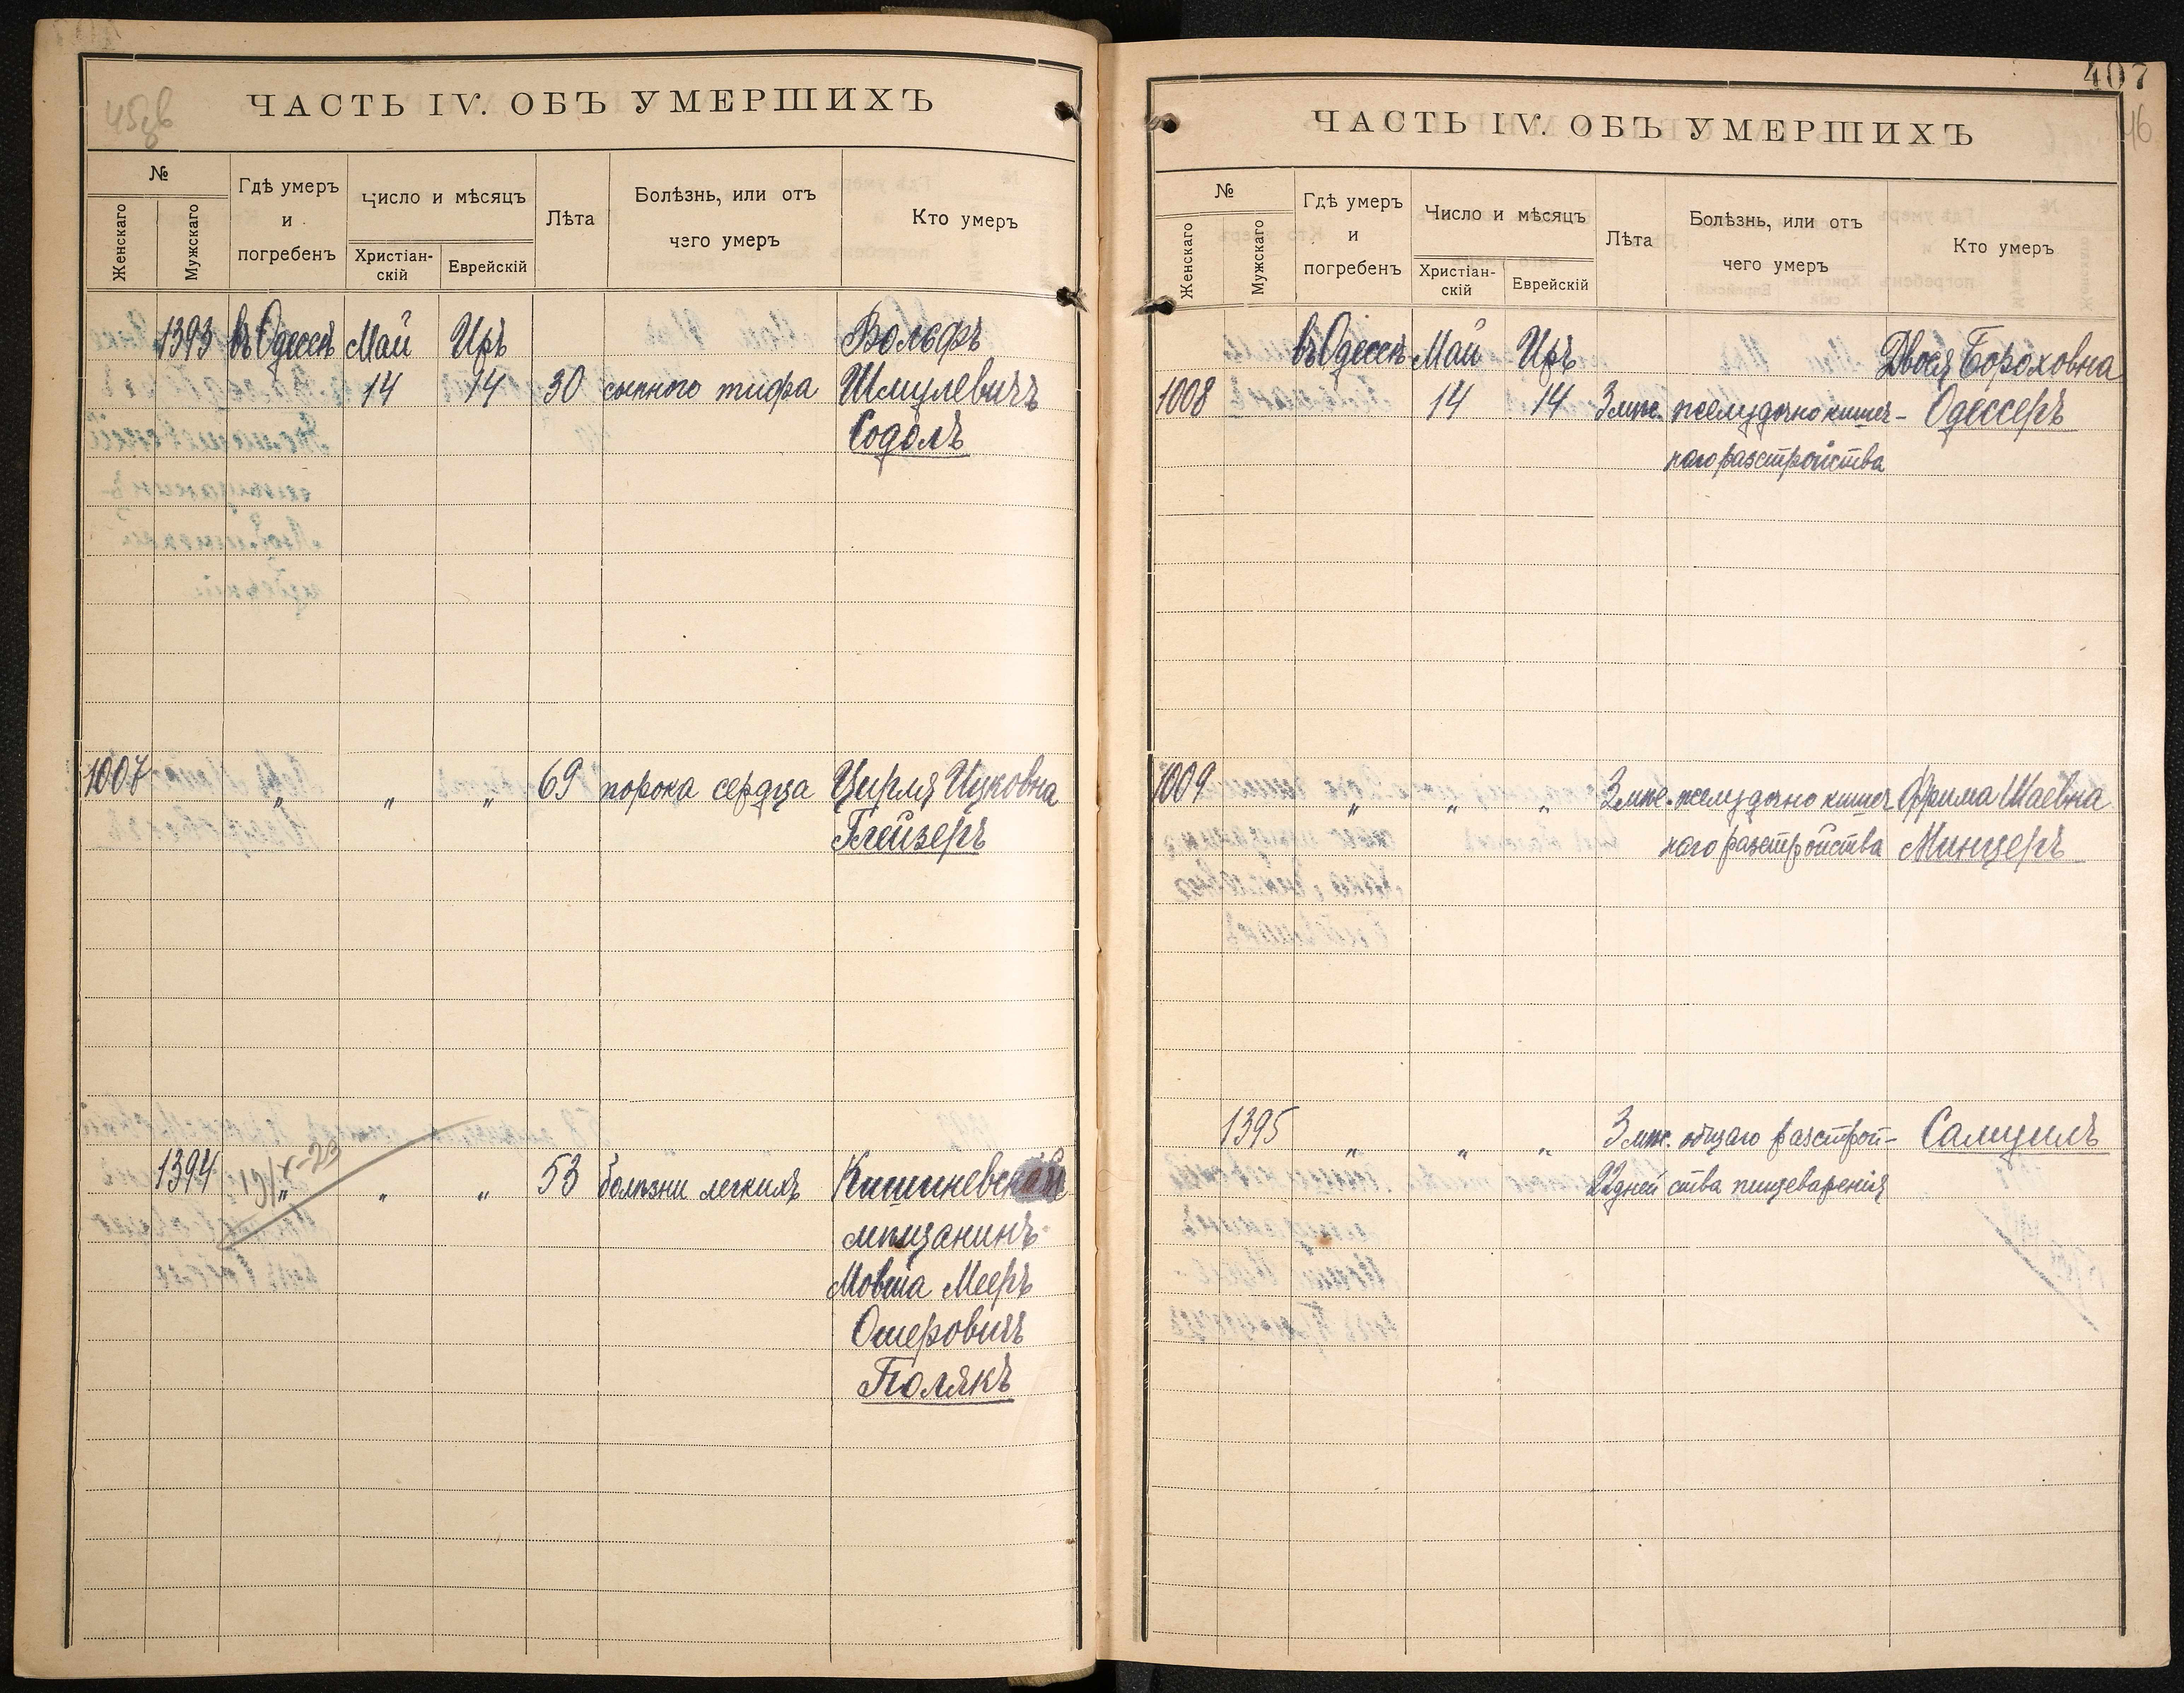 ЧАСТЬ IV. ОБЪ УМЕРШИХЪ
№
Женскаго
Мужскаго
Гдѣ умеръ
и
погребенъ
Число и мѣсяцъ
Христіан-
скій
Еврейскій
Лѣта
Болѣзнь, или отъ
чего умеръ
Кто умеръ
1393 въ Одессѣ Май Иръ Вольфъ
14 14 30 сыпного тифа Шмулевичъ
Содолъ
1007 „ „ „ 69 порока сердца Цирля Ицковна
Глейзеръ
1394 „ „ „ 53 болѣзни легкихъ Кишиневскій
19/X-23
мѣщанинъ
Мовша Мееръ
Ошеровичъ
Полякъ
407
46
ЧАСТЬ IV. ОБЪ УМЕРШИХЪ
№
Женскаго
Мужскаго
Гдѣ умеръ
и
погребенъ
Число и мѣсяцъ
Христіан-
скій
Еврейскій
Лѣта
Болѣзнь, или отъ
чего умеръ
Кто умеръ
въ Одессѣ Май Иръ Двося Бороховна
1008 14 14 3 мѣс. желудочно кишеч- Одессеръ
наго разстройства
1009 „ „ „ 3 мѣс. желудочно кишеч Фрима Шаевна
наго разстройства Минцеръ
1395 „ „ „ 3 мѣс. общаго разстрой- Самуилъ
22 дней ства пищеваренія